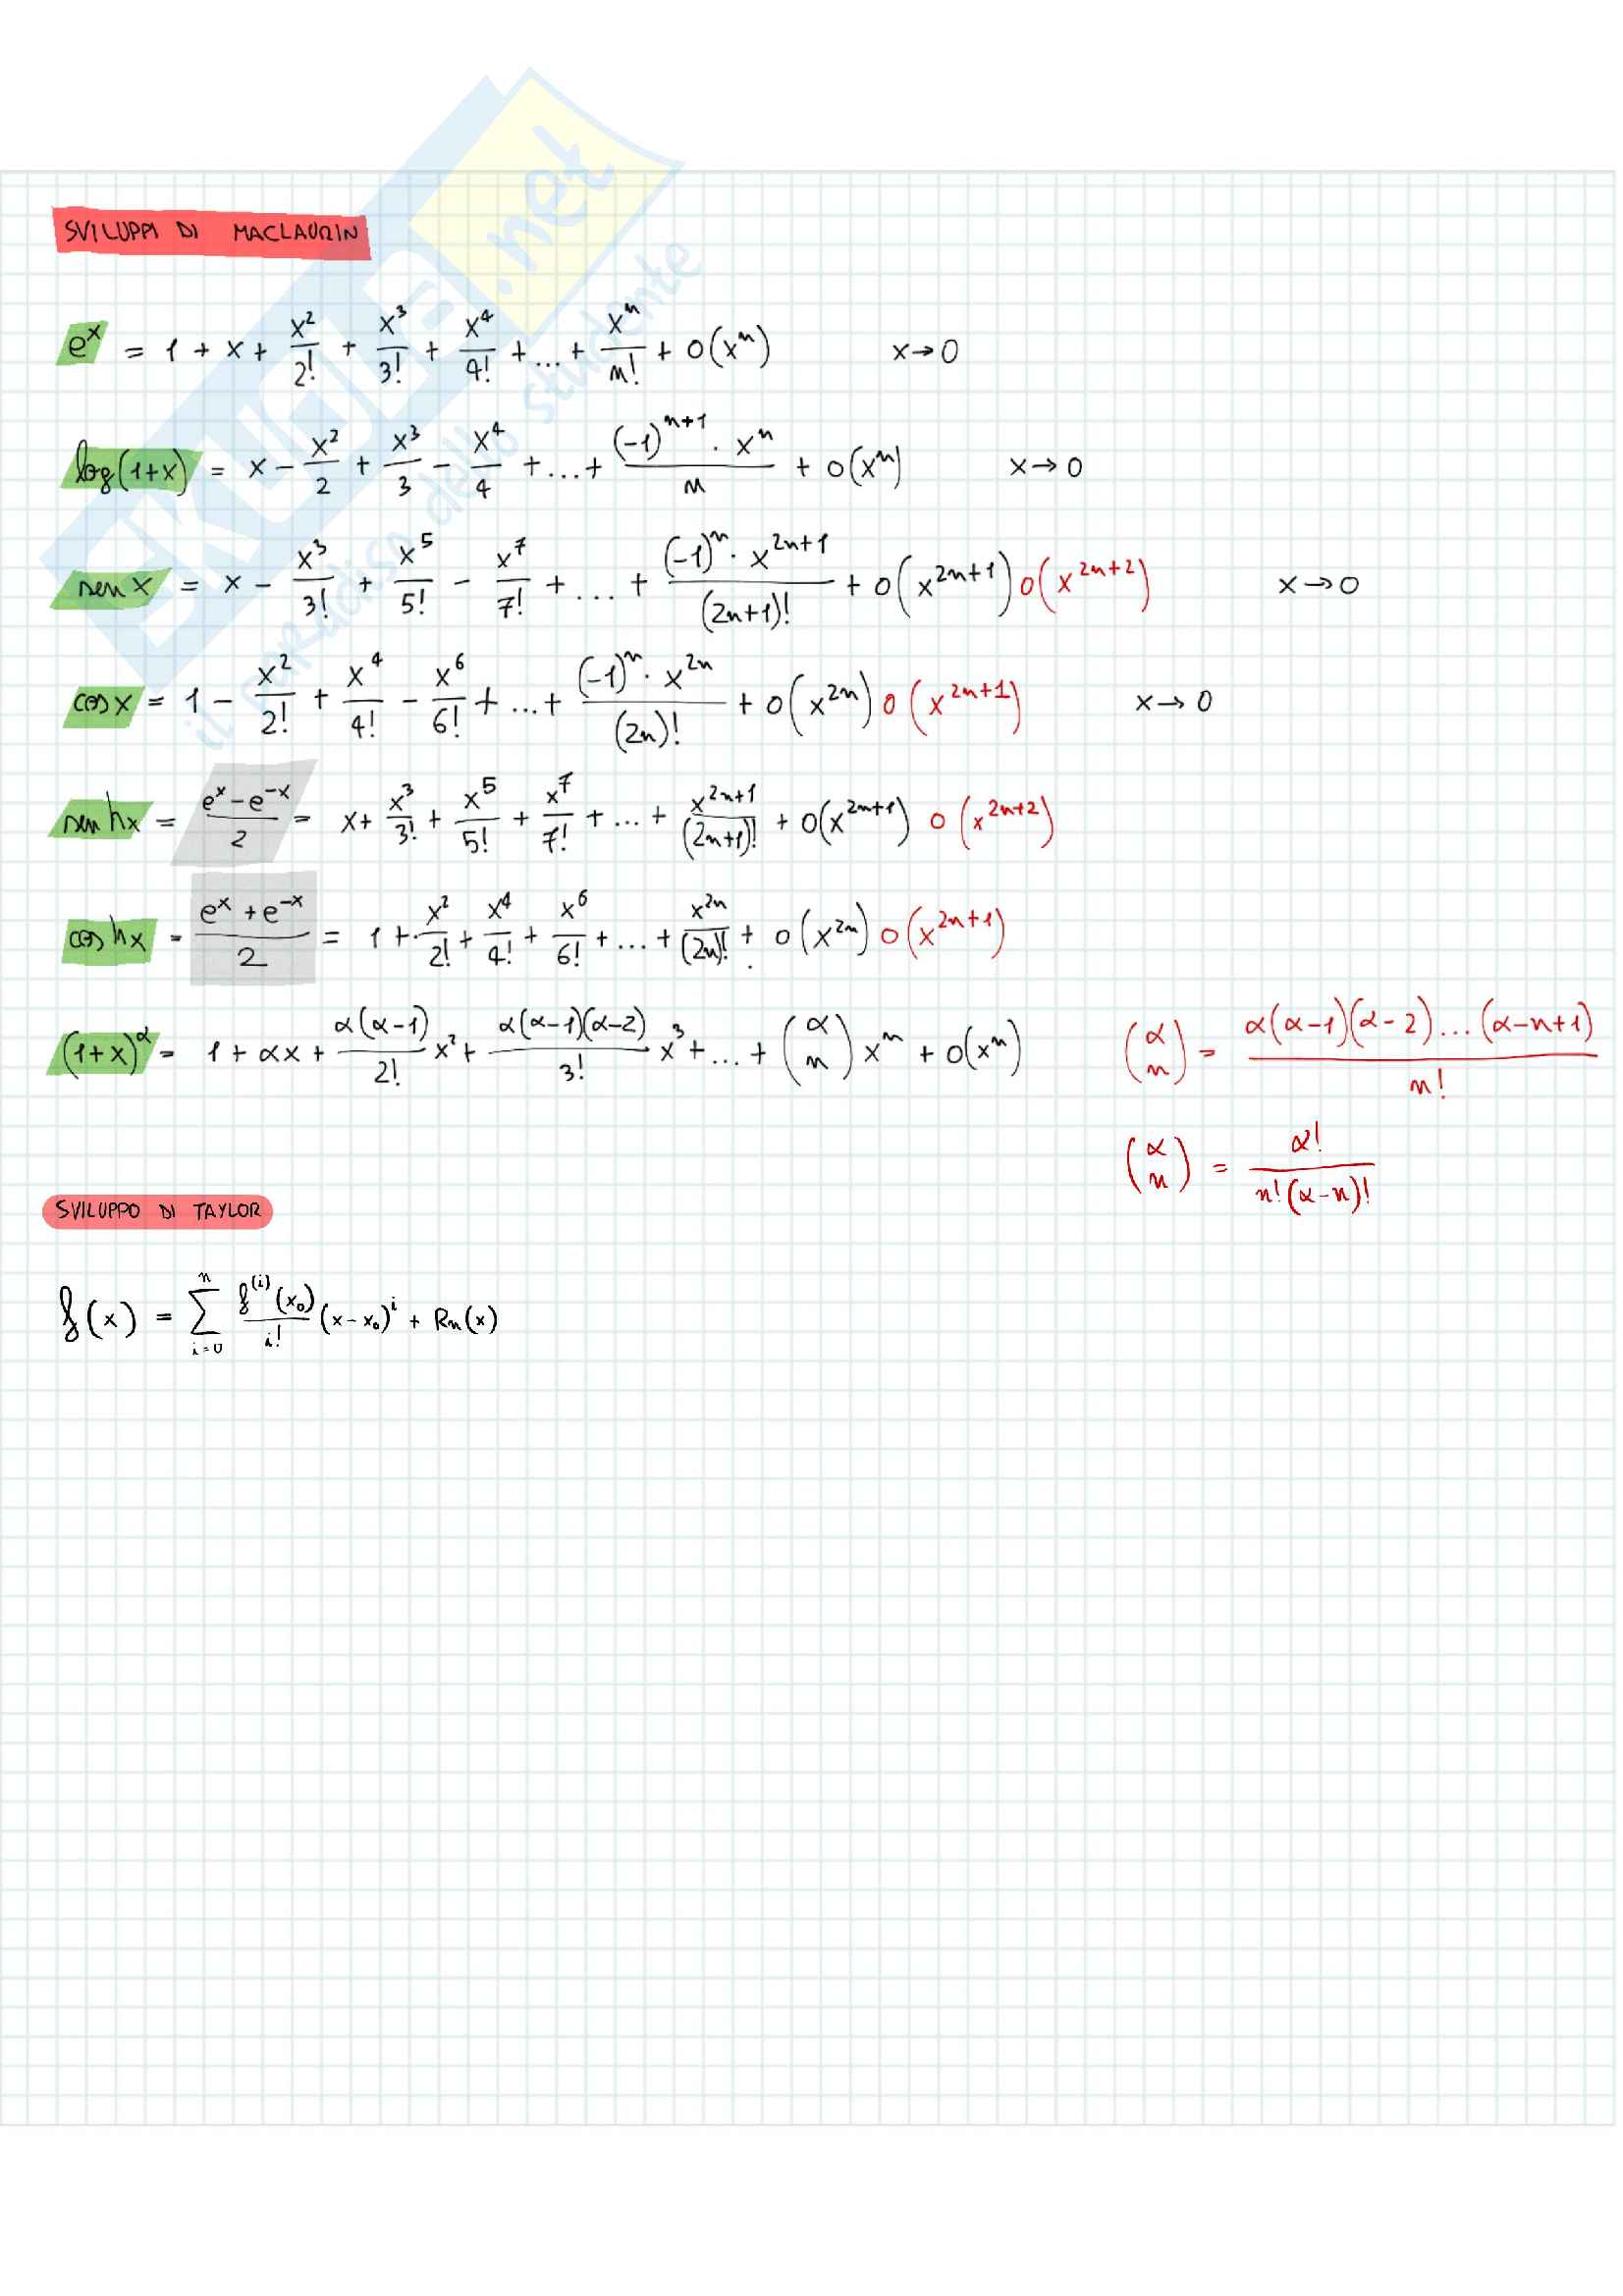 SVILUPPI DI MACLAURIN
e^x = 1 + x + x^2/2! + x^3/3! + x^4/4! + ... + x^n/n! + o(x^n) x→0
log(1+x) = x - x^2/2 + x^3/3 - x^4/4 + ... + (-1)^(n+1) · x^n/n + o(x^n) x→0
sen x = x - x^3/3! + x^5/5! - x^7/7! + ... + (-1)^n · x^(2n+1)/(2n+1)! + o(x^(2n+1)) o(x^(2n+2)) x→0
cos x = 1 - x^2/2! + x^4/4! - x^6/6! + ... + (-1)^n · x^(2n)/(2n)! + o(x^(2n)) o(x^(2n+1)) x→0
sen hx = (e^x - e^-x)/2 = x + x^3/3! + x^5/5! + x^7/7! + ... + x^(2n+1)/(2n+1)! + o(x^(2n+1)) o(x^(2n+2))
cos hx = (e^x + e^-x)/2 = 1 + x^2/2! + x^4/4! + x^6/6! + ... + x^(2n)/(2n)! + o(x^(2n)) o(x^(2n+1))
(1+x)^α = 1 + αx + α(α-1)/2! x^2 + α(α-1)(α-2)/3! x^3 + ... + (α n) x^n + o(x^n) (α n) = α(α-1)(α-2)...(α-n+1)/n!
(α n) = α!/n!(α-n)!
SVILUPPO DI TAYLOR
f(x) = Σ_(i=0)^n f^(i)(x₀)/i! (x-x₀)^i + Rn(x)
SKUOLA.net
il paradiso dello studente